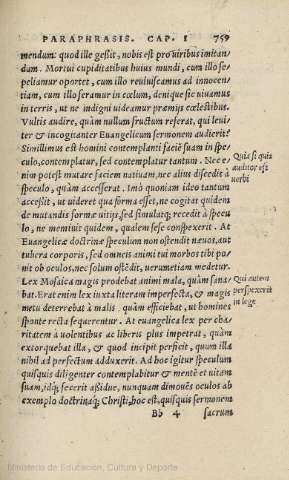 PARAPHRASIS. CAP. I 759
mendum: quod ille gessit, nobis est pro uiribus imitan
dam. Mortui cupiditatibus huius mundi, cum illo se=
peliamur oportet, cum illo reuiuiscamus ad innocen=
tiam, cum illo feramur in cœlum, denique sic uiuamus
in terris, ut ne indigni uideamur præmijs cœlestibus.
Vultis audire, quàm nullum fructum referat, qui leui=
ter & incogitanter Euangelicum sermonem audierit?
Simillimus est homini contemplanti faciē suam in spe
culo, contemplatur, sed contemplatur tantum. Nec e=
nim potest mutare faciem natiuam, nec alius discedit à
speculo, quàm accesserat. Imò quoniam ideo tantum
accessit, ut uideret qua forma esset, ne cogitat quidem
de mutandis formæ uitijs, sed simulatq; recedit à specu
lo, ne meminit quidem, qualem sese conspexerit. At
Euangelicæ doctrinæ speculum non ostendit næuos, aut
tubera corporis, sed omneis animi tui morbos tibi po=
nit ob oculos, nec solum ostēdit, uerumetiam medetur.
Lex Mosaica magis prodebat animi mala, quàm sana=
bat. Erat enim lex iuxta literam imperfecta, & magis
metu deterrebat à malis. quàm efficiebat, ut homines
sponte recta sequerentur. At euangelica lex per cha
ritatem à uolentibus ac liberis plus impetrat, quàm
extorquebat illa, & quod incipit perficit, quum illa
nihil ad perfectum adduxerit. Ad hoc igitur speculum
quisquis diligenter contemplabitur & mentē et uitam
suam, idq; fecerit assidue, nunquam dimouēs oculos ab
exemplo doctrinaq; Christi, hoc est, quisquis sermonem
Bb 4 sacrum
Quis si quis
auditor est
uerbi
Qui autem
perspexerit
in lege
Ministerio de Educación, Cultura y Deporte